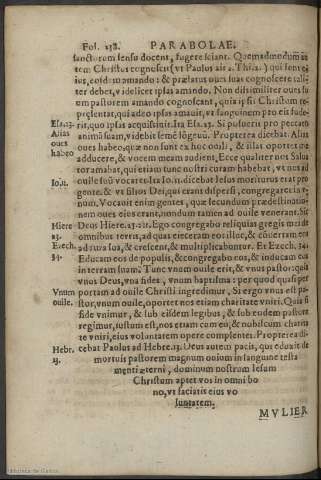 Fol. 238. PARABOLAE.
sanctorum sensu docent, fugere sciant. Quemadmodum au
tem Christus cognoscit (vt Paulus ait 2. Thi. 2.) qui sent ei
ius, eosdem amando: & prælatus oues suas cognoscere tali
ter debet, videlicet ipsas amando. Non dissimiliter oues su
um pastorem amando cognoscant, quia ipsi Christum re
præsentat, qui adeo ipsas amauit, vt sanguinem pro eis funde
Esa. 53. rit, quo ipsas acquisiuit. Ita Esa. 53. Si posuerit pro peccato
Alias animã suam, videbit semẽ lõgeuũ. Propterea dicebat. Alias
oues oues habeo, quæ non sunt ex hoc ouili, & illas oportet me
habeo adducere, & vocem meam audient. Ecce qualiter nos Salua
tor amabat, qui etiam tunc nostri curam habebat, vt nos ad
ouile suũ vocaret. Ita Io. 11. dicebat Iesus moriturus erat pro
Io. 11. gente. & vt filios Dei, qui erant dispersi, congregaret in v
num. Vocauit enim gentes, quæ secundum prædestinatio
nem oues eius erant, nondum tamen ad ouile venerant. Sic
Hiere Deus Hiere. 23. ait. Ego congregabo reliquias gregis mei de
23. omnibus terris, ad quas eiecero eos illuc, & cõuertam eos
Ezech. ad rura sua, & crescent, & multiplicabuntur. Et Ezech. 34.
34. Educam eos de populis, & congregabo eos, & inducam eos
in terram suam. Tunc vnum ouile erit, & vnus pastor: quia
vnus Deus, vna fides, vnum baptisma: per quod quasi per
Vnum portam ad ouile Christi ingredimur. Si ergo vnus est pa
ouile. stor, vnum ouile, oportet nos etiam charitate vniri. Quia si
fide vnimur, & sub eisdem legibus, & sub eodem pastore
regimur, iustum est, nos etiam cum eo, & nobiscum charita
te vniri, eius voluntatem opere complentes. Propterea di
Hebr. cebat Paulus ad Hebre. 13. Deus autem pacis, qui eduxit de
13. mortuis pastorem magnum ouium in sanguine testa
menti æterni, dominum nostrum Iesum
Christum aptet vos in omni bo
no, vt faciatis eius vo
luntatem.
MVLIER